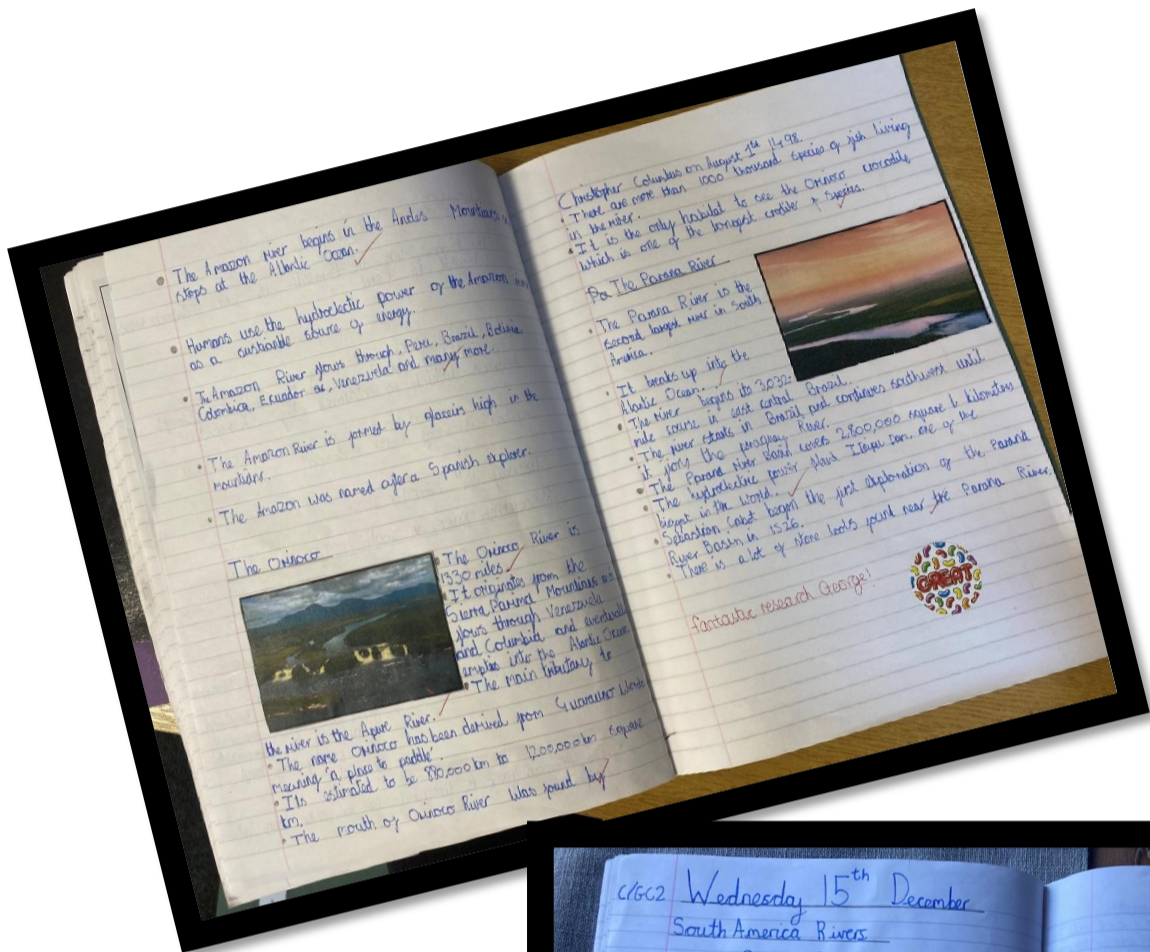 The Amazon river begins in the Andes Mountains
stops at the Atlantic Ocean.
Humans use the hydroelectic power of the Amazon
as a sustiable source of energy.
The Amazon River flows through, Peru, Brazil, Bolivia
Colombia, Ecuador Venezuela and many more.
The Amazon River is formed by glaciers high in the
mountians.
The Amazon was named after a Spanish explorer.
The Orinoco
The Orinoco River is
1330 miles.
It originates from the
Sierra Parima Mountians
flows through Venezuela
and Columbia and eventually
empties into the Atlantic Ocean.
The main tributary to
the river is the Apure River.
The name Orinoco has been derived from
meaning 'a place to paddle'.
Its estimated to be 880,000 km to 1,200,000 km square
km.
The mouth of Orinoco River was found by
Christopher Columbus on August 1st 1498.
There are more than 1000 thousand species of fish living
in the river.
It is the only habitat to see the Orinoco crocodile
which is one of the longest species.
Pa The Parana River
The Parana River is the
second largest river in South
America.
It breaks up into the
Atlantic Ocean.
The river begins its 3,032-
mile course in east central Brazil.
The river starts in Brazil and continues southwest until
it joins the River.
The Parana River Basin covers 2,800,000 square kilometers
The hydroelectric power Itaipu Dam, one of the
biggest in the world.
Sebastian Cabot began the first exploration of the Parana
River Basin in 1526.
There is a lot of stone tools found near the Parana River.
fantastic research George!
GREAT
C/GC2 Wednesday 15th December
South America Rivers